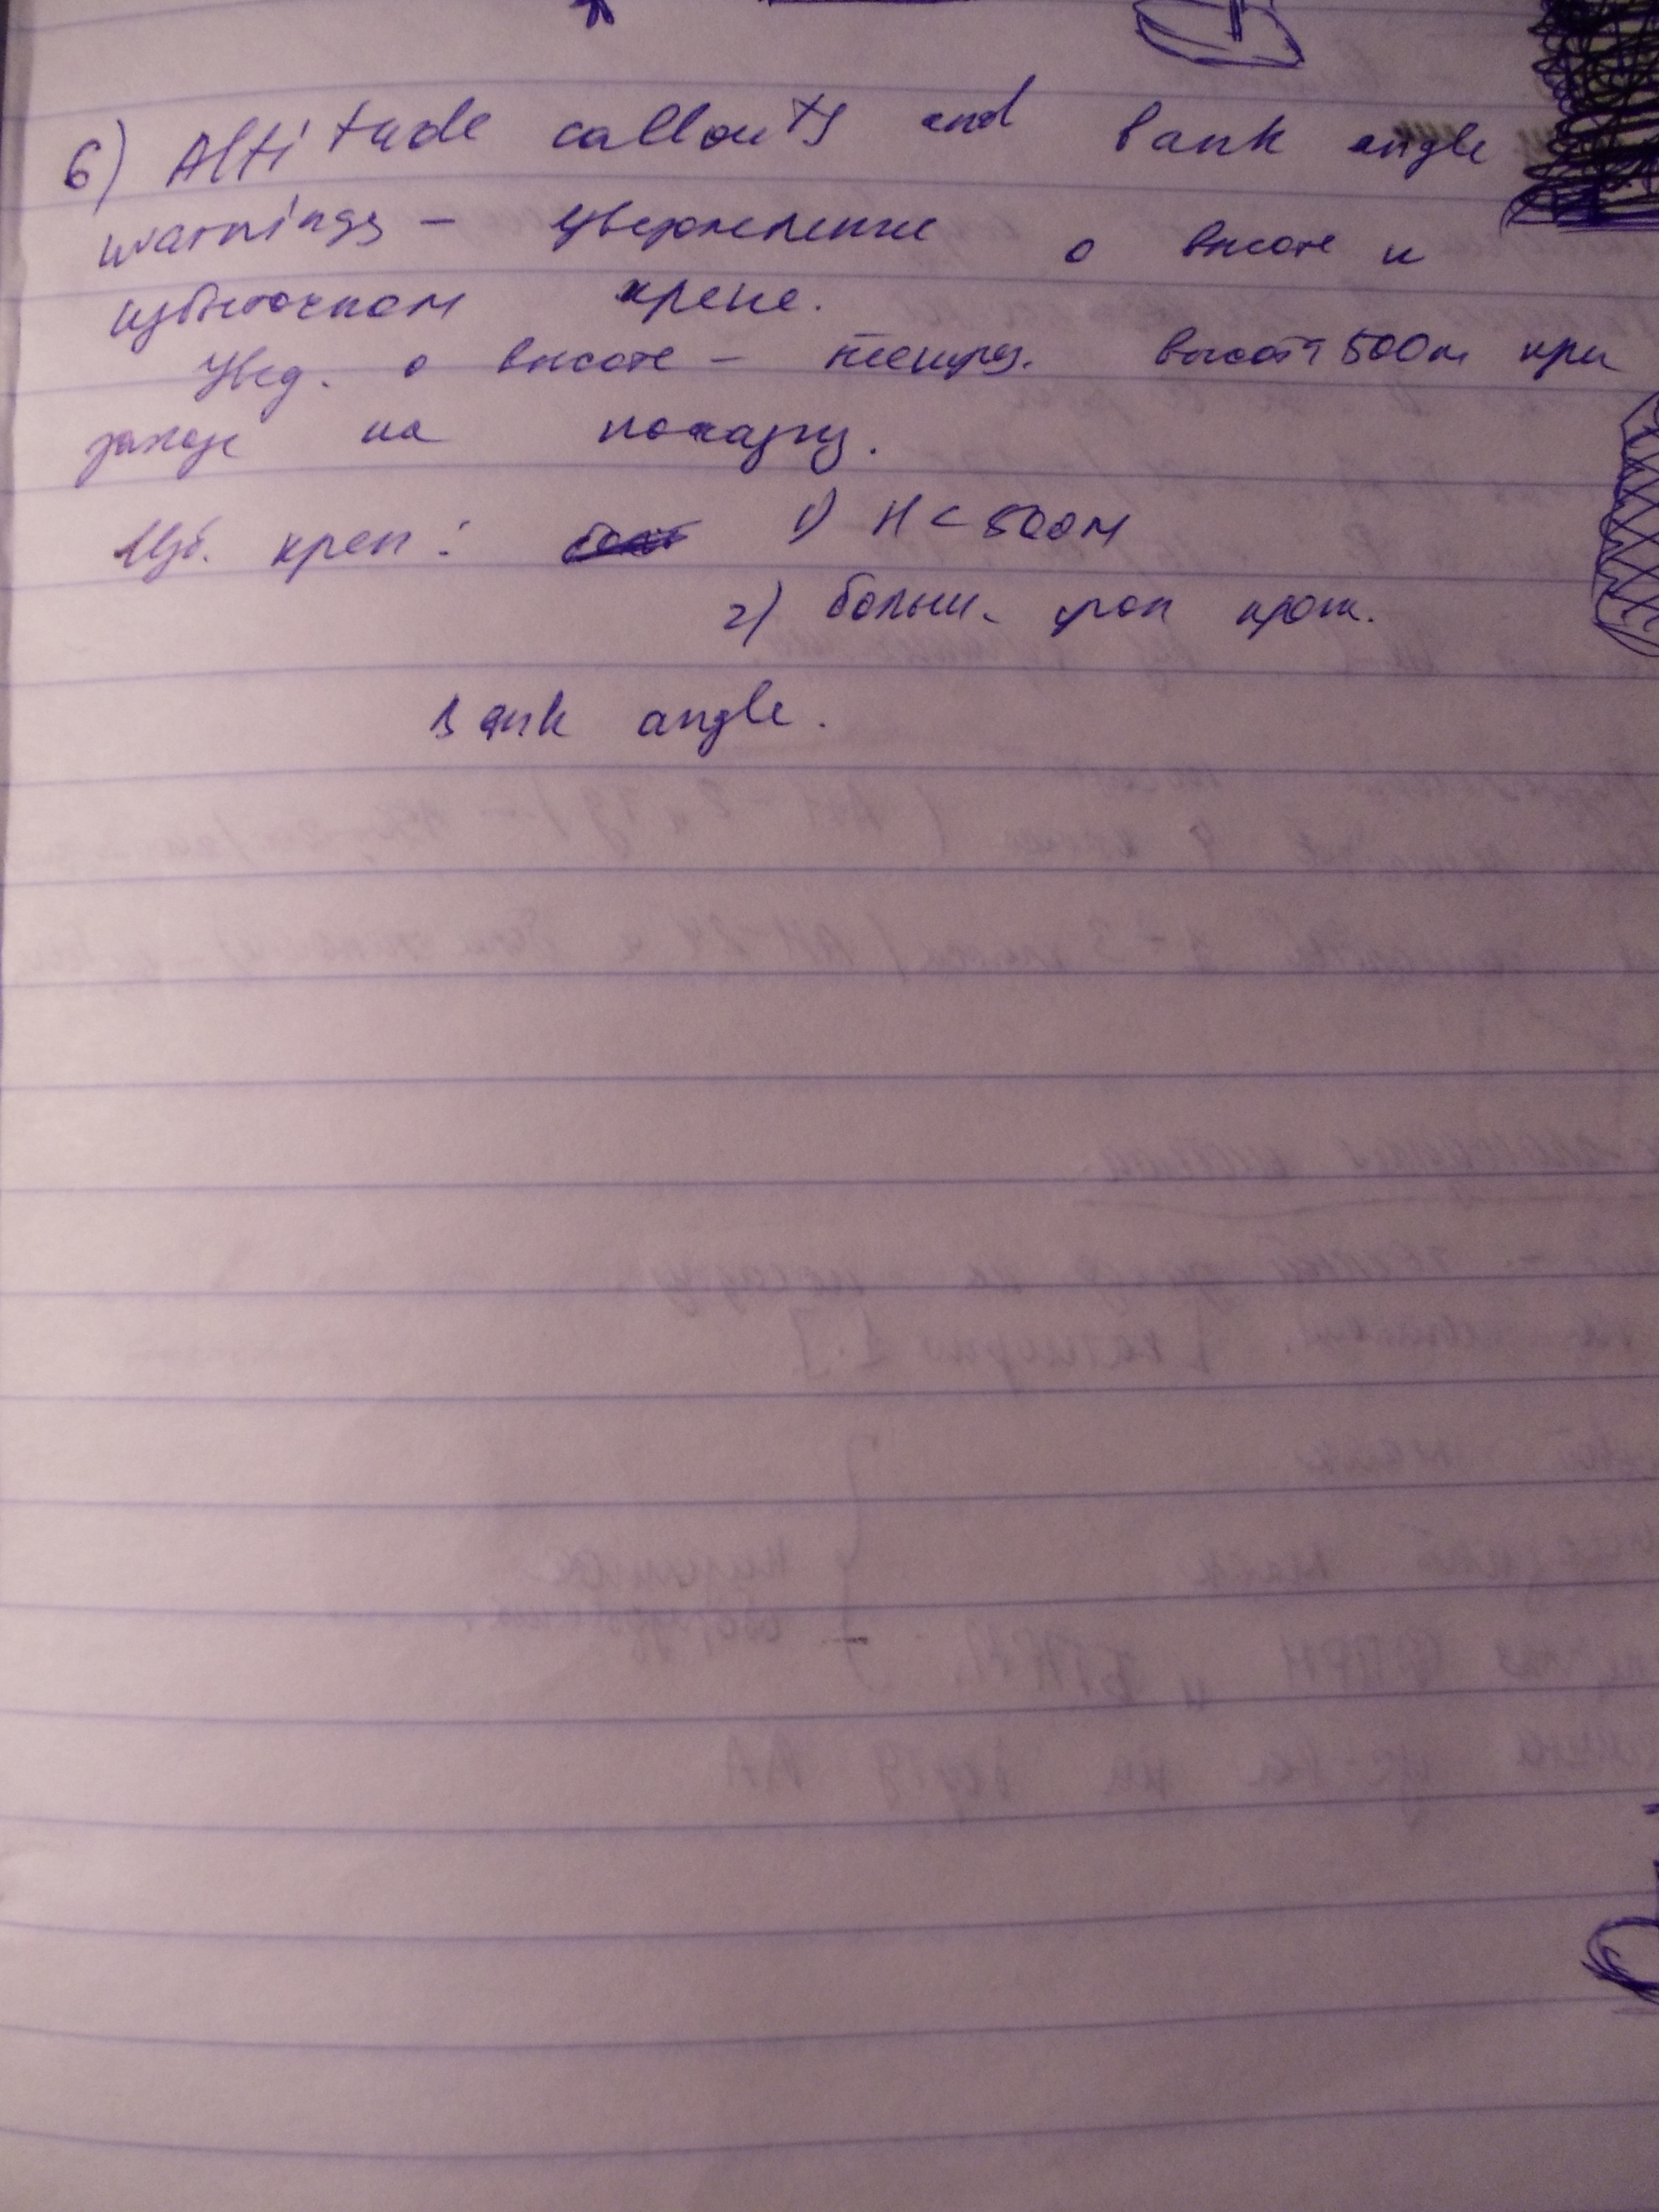 6) Altitude callouts and bank angle
warnings – уведомление о высоте и
избыточном крене.
Увед. о высоте – высота 500м при
заходе на посадку.
Изб. крен: 1) H < 500м
2) больш. крен
Bank angle.